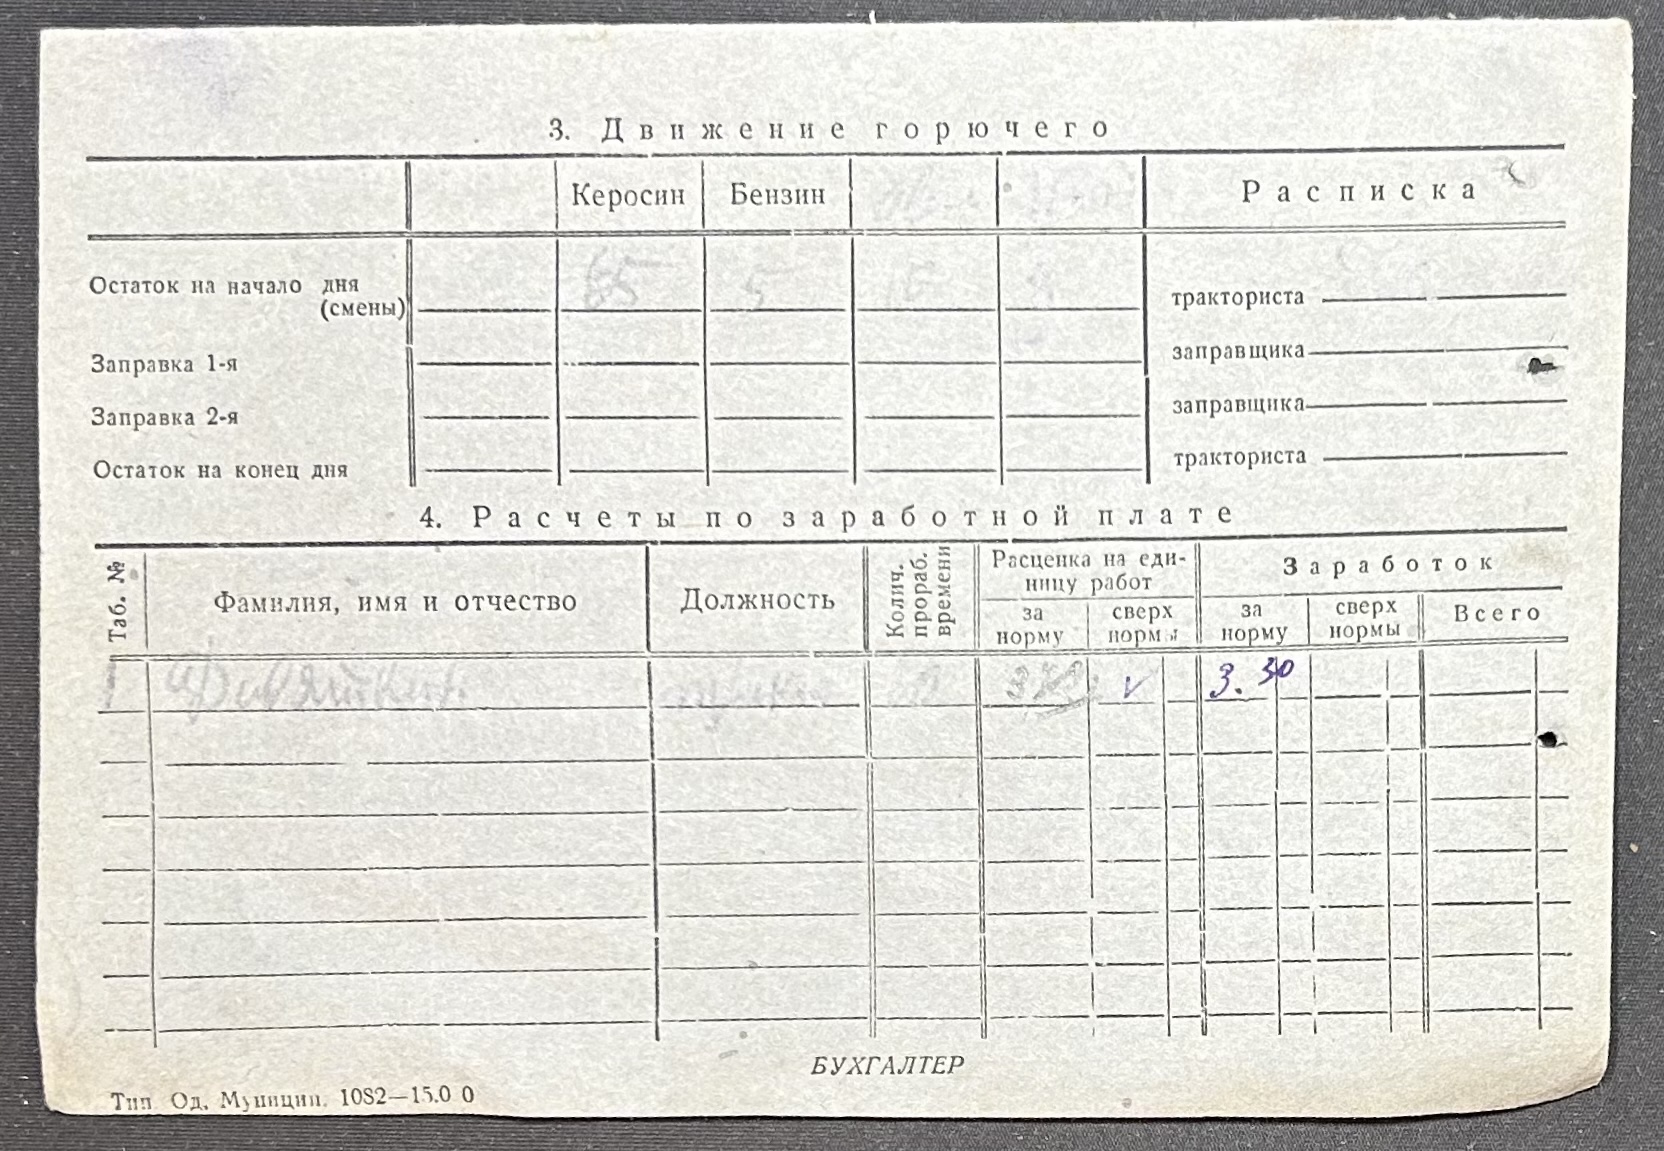 3. Движение горючего
Керосин Бензин Расписка
Остаток на начало дня
(смены) 65 5 трактористa
Заправка 1-я заправщика
Заправка 2-я заправщика
Остаток на конец дня тракториста
4. Расчеты по заработной плате
Таб. № Фамилия, имя и отчество Должность Колич. прораб. времени
Расценка на еди-
ницу работ
за
норму
сверх
нормы
Заработок
за
норму
сверх
нормы
Всего
1 V 3.30
БУХГАЛТЕР
Тип Од. Муницип. 1082—15.0 0